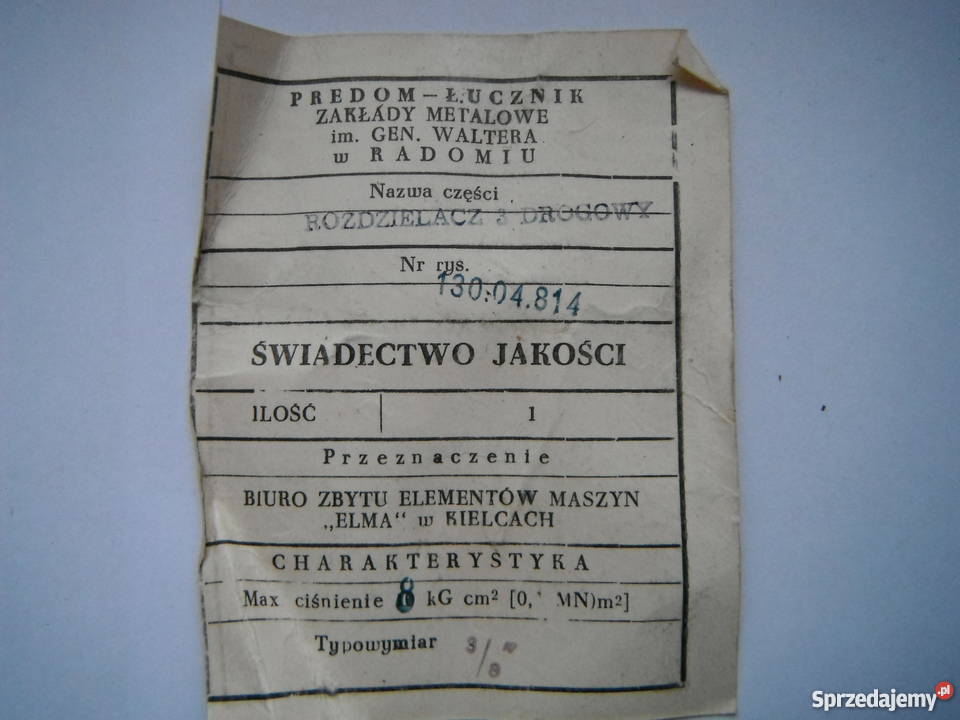 PREDOM – ŁUCZNIK
ZAKŁADY METALOWE
im. GEN. WALTERA
w RADOMIU
Nazwa części
ROZDZIELACZ 3 DROGOWY
Nr rys.
130.04.814
ŚWIADECTWO JAKOŚCI
ILOŚĆ 1
Przeznaczenie
BIURO ZBYTU ELEMENTÓW MASZYN
„ELMA“ w KIELCACH
CHARAKTERYSTYKA
Max ciśnienie 8 kG cm² [0, MN)m²]
Typowymiar 3/8"
Sprzedajemy.pl